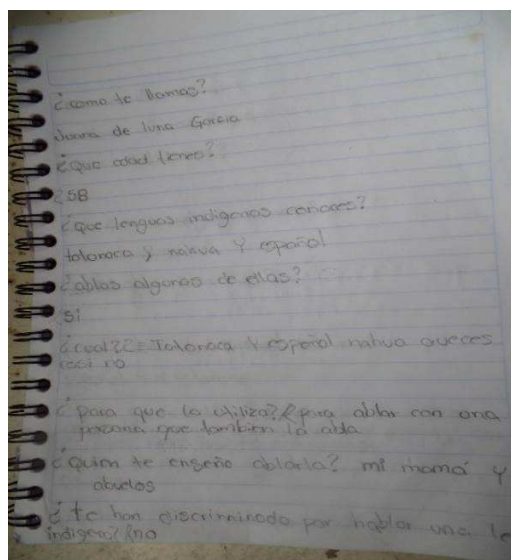 ¿como te llamas?
Juana de luna Garcia
¿que edad tienes?
58
¿que lenguas indigenas conoces?
totonaca y nahua Y español
¿ablas algunas de ellas?
si
¿cual? Totonaca Y español nahua aveces
casi no
¿para que la utiliza? para ablar con ona
persona que tambien la abla
¿Quien te enseño ablarla? mi mamá y
abuelos
¿te han discriminado por hablar una le
indigena? no